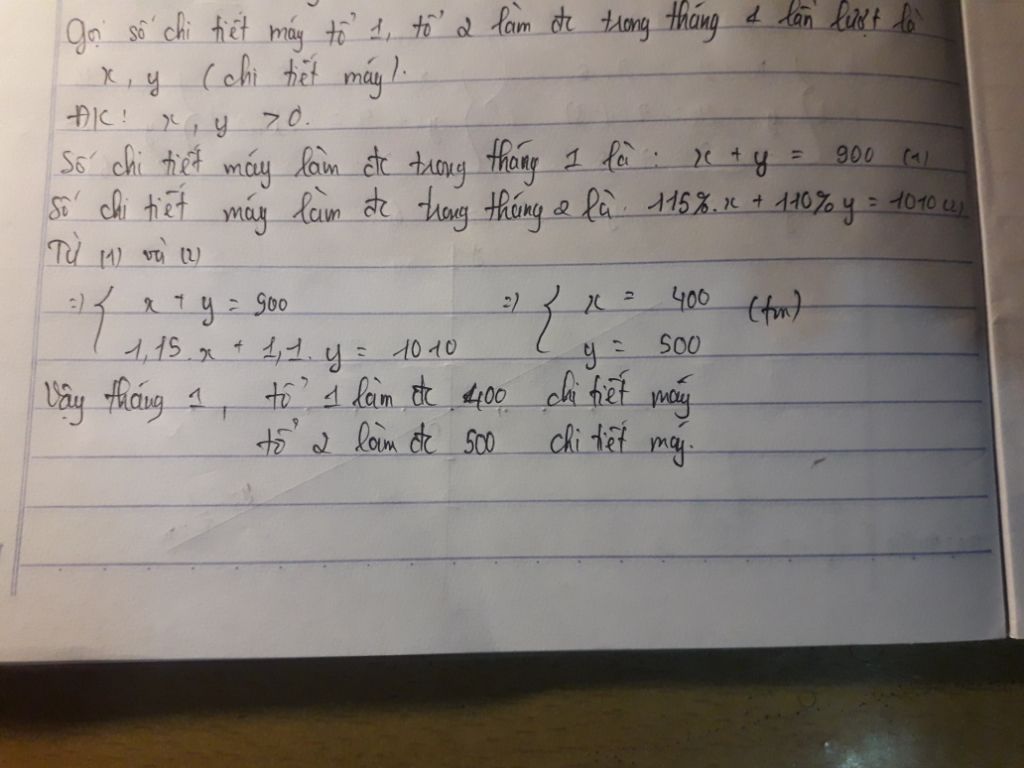 Gọi số chi tiết máy tổ 1, tổ 2 làm đc trong tháng 1 lần lượt là
x, y (chi tiết máy).
ĐK: x, y > 0.
Số chi tiết máy làm đc trong tháng 1 là: x + y = 900 (1)
Số chi tiết máy làm đc trong tháng 2 là: 115%.x + 110% y = 1010 (2)
Từ (1) và (2)
=) { x + y = 900 =) { x = 400 (tm)
1,15.x + 1,1.y = 1010 y = 500
Vậy tháng 1, tổ 1 làm đc 400 chi tiết máy
tổ 2 làm đc 500 chi tiết máy.